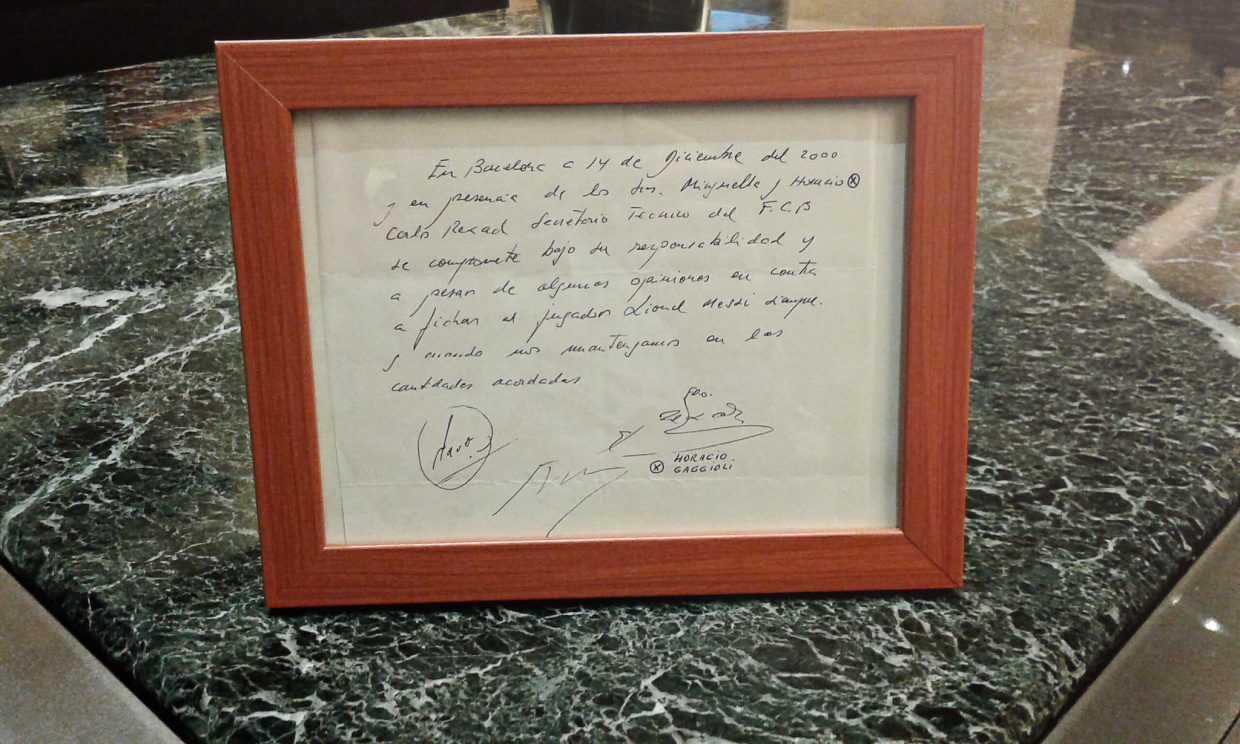 En Barcelona a 14 de Diciembre del 2000
y en presencia de los Sres. Minguella y Horacio ⓧ
Carlos Rexach Secretario Técnico del F.C.B
se compromete bajo su responsabilidad y
a pesar de algunas opiniones en contra
a fichar al jugador Lionel Messi siempre.
y cuando nos mantengamos en las
cantidades acordadas
Fdo.
ⓧ HORACIO
GAGGIOLI